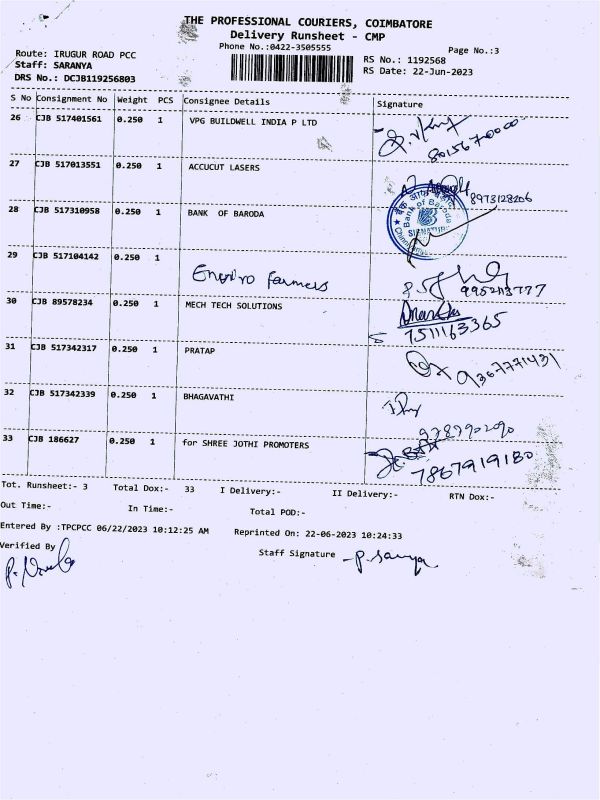 THE PROFESSIONAL COURIERS, COIMBATORE
Delivery Runsheet - CMP
Phone No.:0422-3505555
Page No.:3
Route: IRUGUR ROAD PCC
Staff: SARANYA
DRS No.: DCJB119256803
RS No.: 1192568
RS Date: 22-Jun-2023
S No Consignment No Weight PCS Consignee Details Signature
26 CJB 517401561 0.250 1 VPG BUILDWELL INDIA P LTD
8015670000
27 CJB 517013551 0.250 1 ACCUCUT LASERS
8973128206
28 CJB 517310958 0.250 1 BANK OF BARODA
Bank of Baroda
SIGNATURE
29 CJB 517104142 0.250 1 Enviro Farmers
30 CJB 89578234 0.250 1 MECH TECH SOLUTIONS
7511163365
31 CJB 517342317 0.250 1 PRATAP
9367771431
32 CJB 517342339 0.250 1 BHAGAVATHI
9787902090
33 CJB 186627 0.250 1 for SHREE JOTHI PROMOTERS
7867919180
Tot. Runsheet:- 3 Total Dox:- 33 I Delivery:- II Delivery:- RTN Dox:-
Out Time:- In Time:- Total POD:-
Entered By :TPCPCC 06/22/2023 10:12:25 AM Reprinted On: 22-06-2023 10:24:33
Verified By
Staff Signature P. Saranya